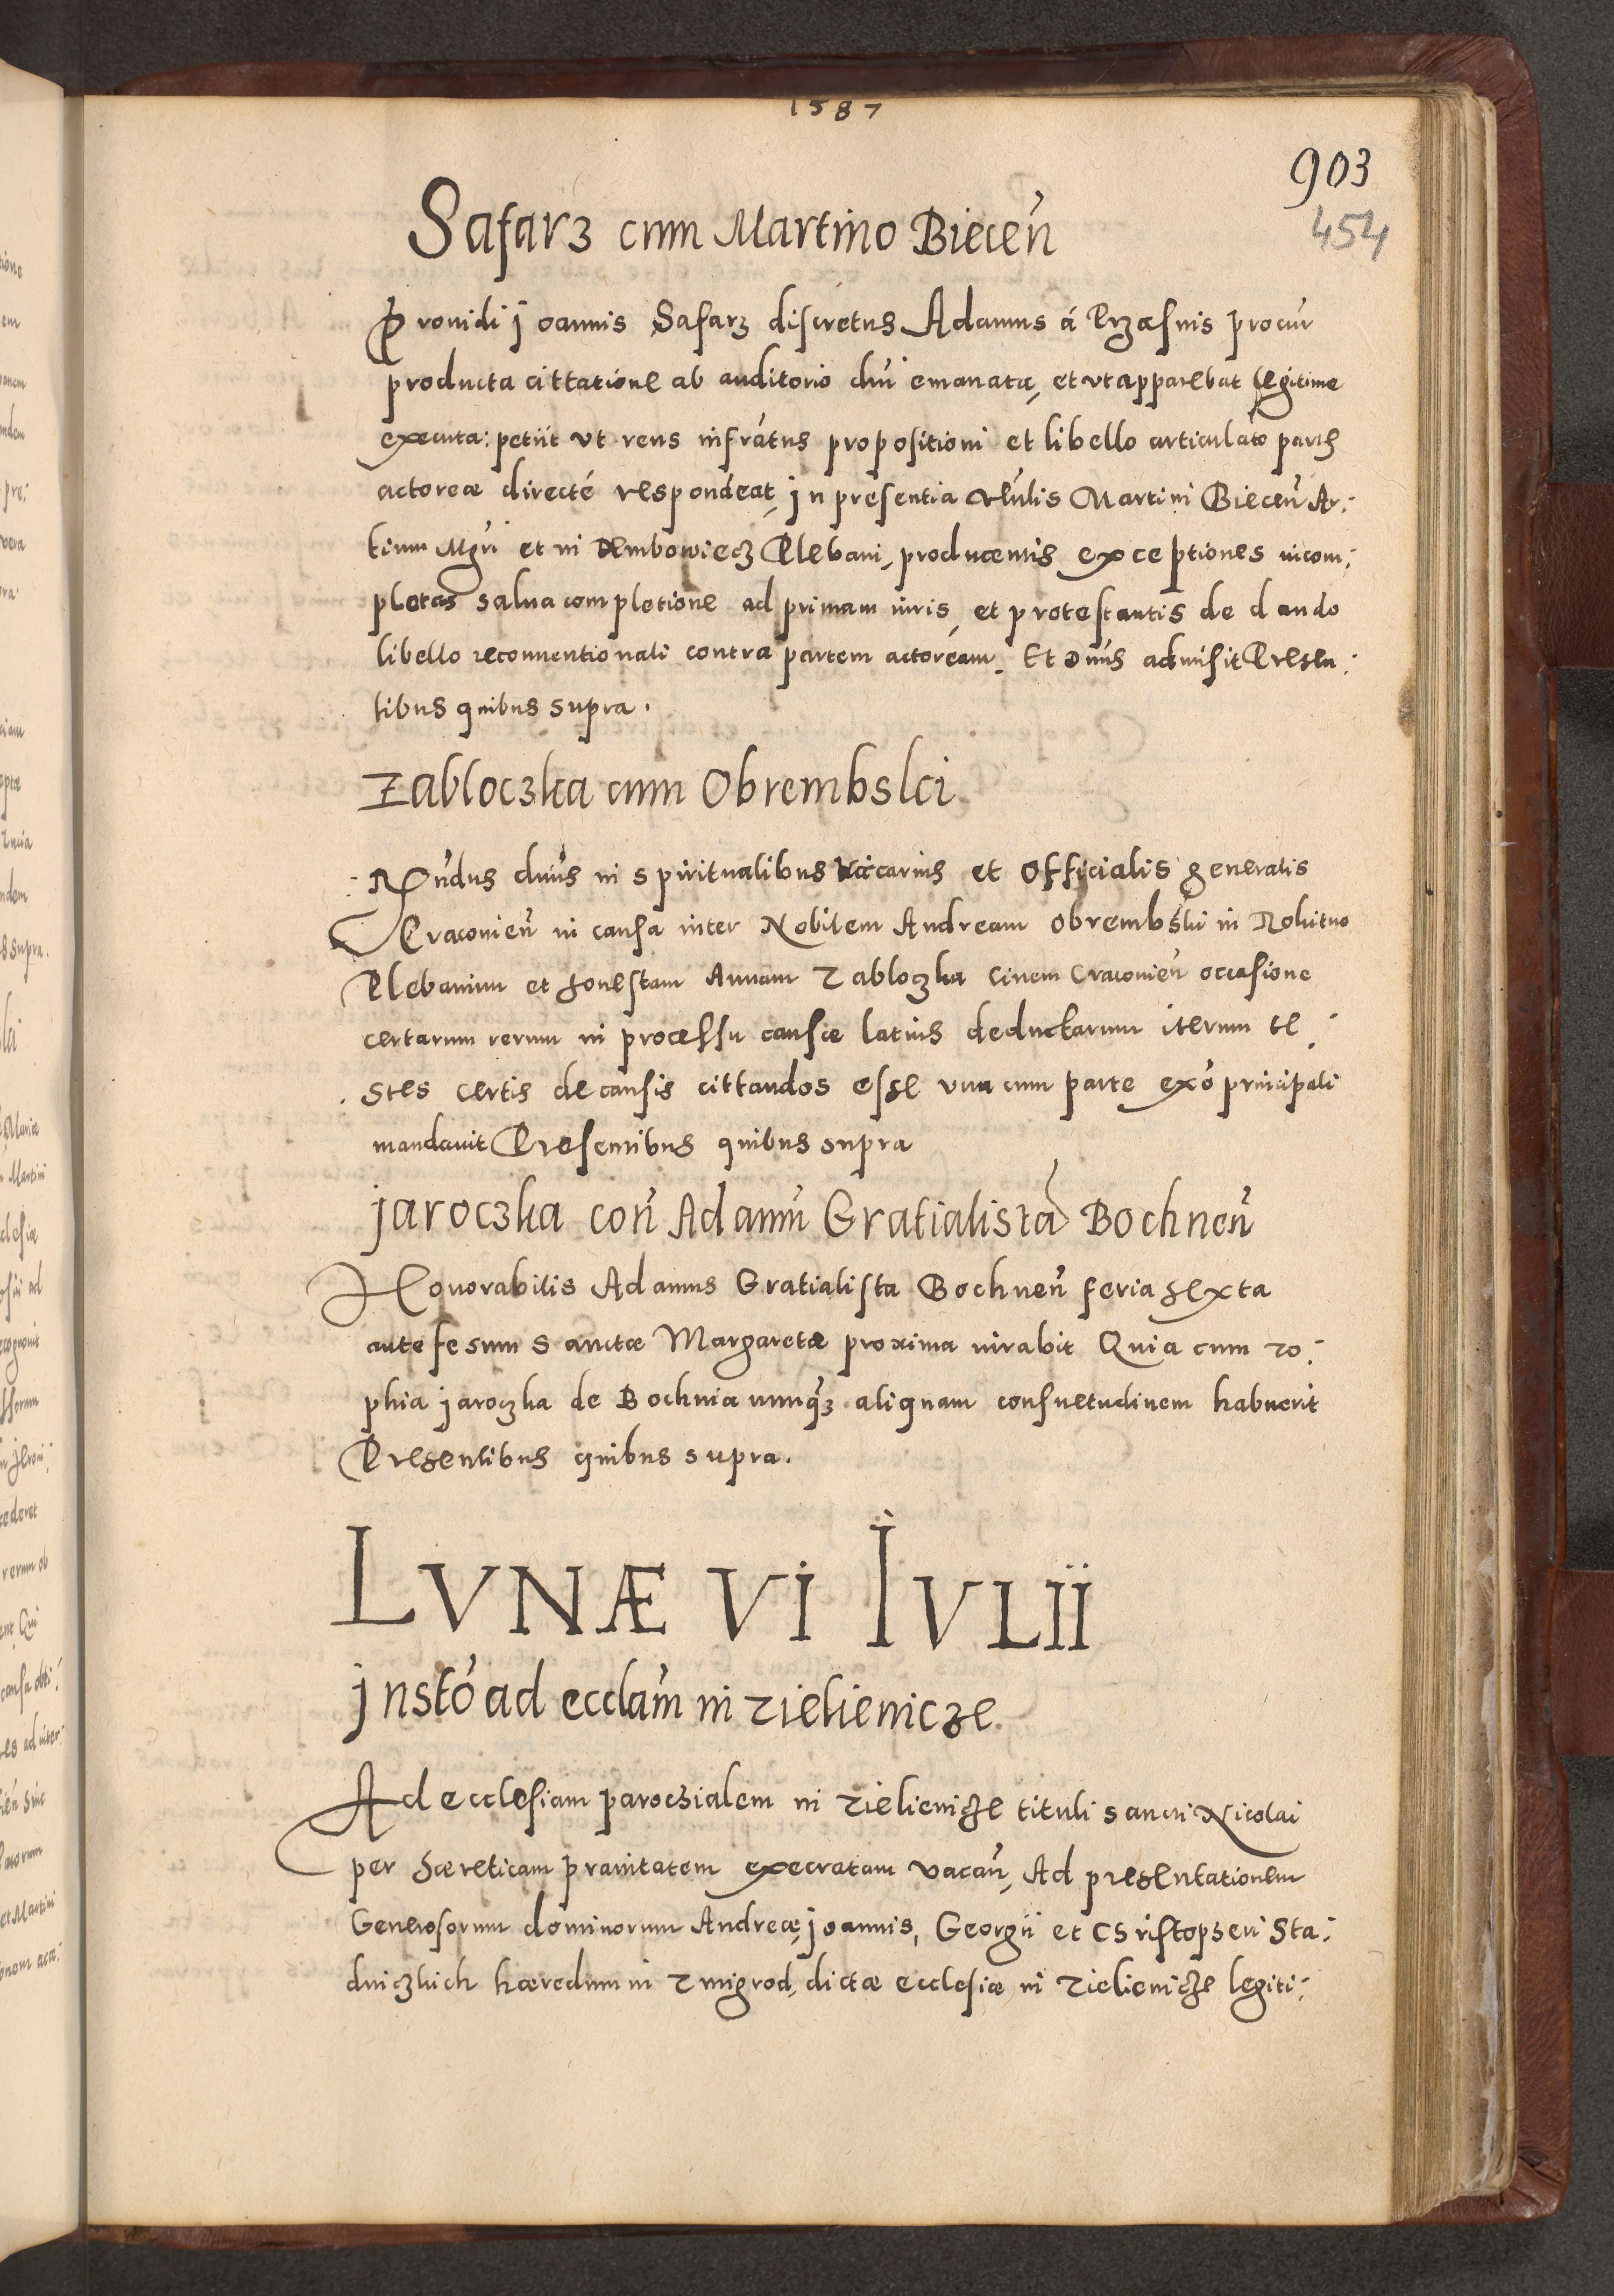 1587
903
454
Safarz cum Martino Biecen̄
Prouidi Joannis Safarz discretus Adamus á Przæsnis procur̄
producta cittatione ab auditorio dn̄i emanata, et vt apparebat legitime
executa: petiit vt reus infrātus propositioni et libello articulato partis
actoreæ directé respondeat, in presentia Vn̄lis Martini Biecen̄ Ar:
tium Mgr̄i et in Dembowiecz Plebani, producentis exceptiones incom:
pletas salua completione ad primam iuris, et protestantis de dando
libello reconuentionali contra partem actoream. Et Dn̄us admisit Presen:
tibus quibus supra.
Zabloczka cum Obrembski
Rn̄dus dn̄us in spiritualibus Vicarius et Officialis generalis
Cracouien̄ in causa inter Nobilem Andream Obrembski in Rokitno
Plebanum et honestam Annam Zabloczka Ciuem Cracouien̄ occasione
certarum rerum in processu causæ latius deductarum iterum te:
stes certis de causis cittandos esse vna cum parte ex̄o principali
mandauit Presentibus quibus supra
Jaroczka con̄ Adamū Gratialistā Bochnen̄
Honorabilis Adamus Gratialista Bochnen̄ feria sexta
ante fesum Sanctæ Margaretæ proxima iurabit Quia cum Zo:
phia Jaroczka de Bochnia nunqz̄ aliquam consuetudinem habuerit
Presentibus quibus supra.
LVNÆ VI IVLII
Instō ad eccla͞m in Zielienicze.
Ad ecclesiam parochialem in Zielienicze tituli sancti Nicolai
per hæreticam prauitatem execratam vacan̄, Ad presentationem
Generosorum dominorum Andreæ, Joannis, Georgii et Christopheri Sta:
dniczkich hæredum in Zmigrod, dictæ ecclesiæ in Zielienicze legiti: